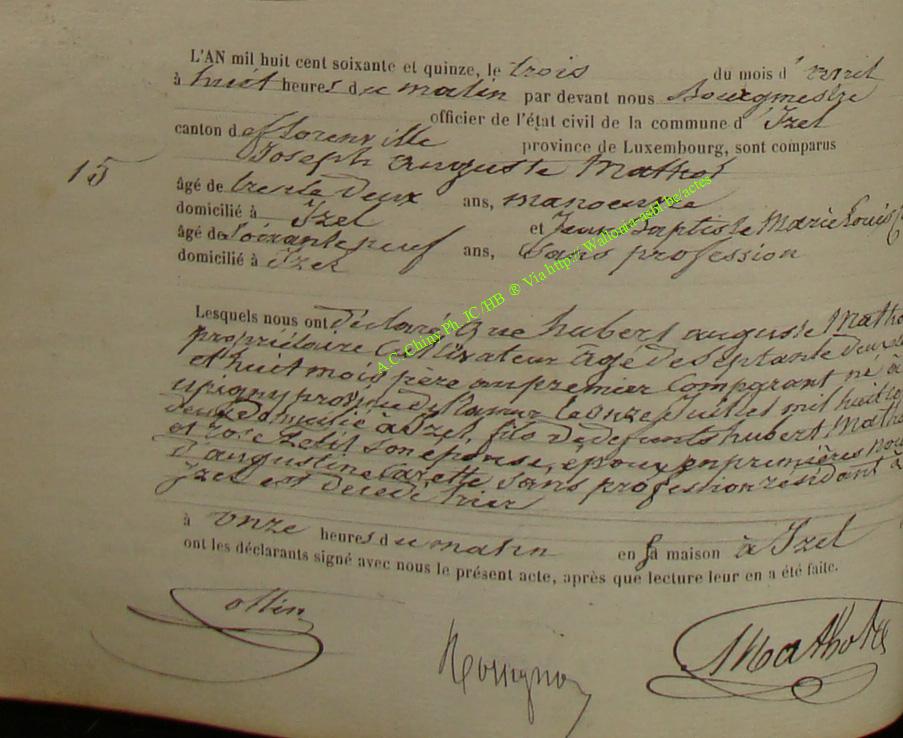 L'AN mil huit cent soixante et quinze, le trois du mois d'avril
à huit heures du matin par devant nous Bourgmestre
officier de l'état civil de la commune d'Izel
canton de florenville province de Luxembourg, sont comparus
15 Joseph auguste Mathot
âgé de trente deux ans, manoeuvre
domicilié à Izel et Jean Baptiste Marie Louis
âgé de soixante neuf ans, sans profession
domicilié à Izel
A.C. Chiny Ph. JC /HB ® Via http:// Wallonia-asbl be/actes
Lesquels nous ont déclaré que hubert auguste Matho
propriétaire Cultivateur âgé de septante deux
et huit mois père au premier Comparant né à
province de Namur le onze Juillet mil huit
deux domicilié à Izel, fils de defunts hubert Matho
et rose Zetil son épouse, époux en premières
d'augustine Carette sans profession résidant à
Izel est décédé hier
à onze heures du matin en sa maison à Izel
ont les déclarants signé avec nous le présent acte, après que lecture leur en a été faite.
Collin
Rossignon
Mathot